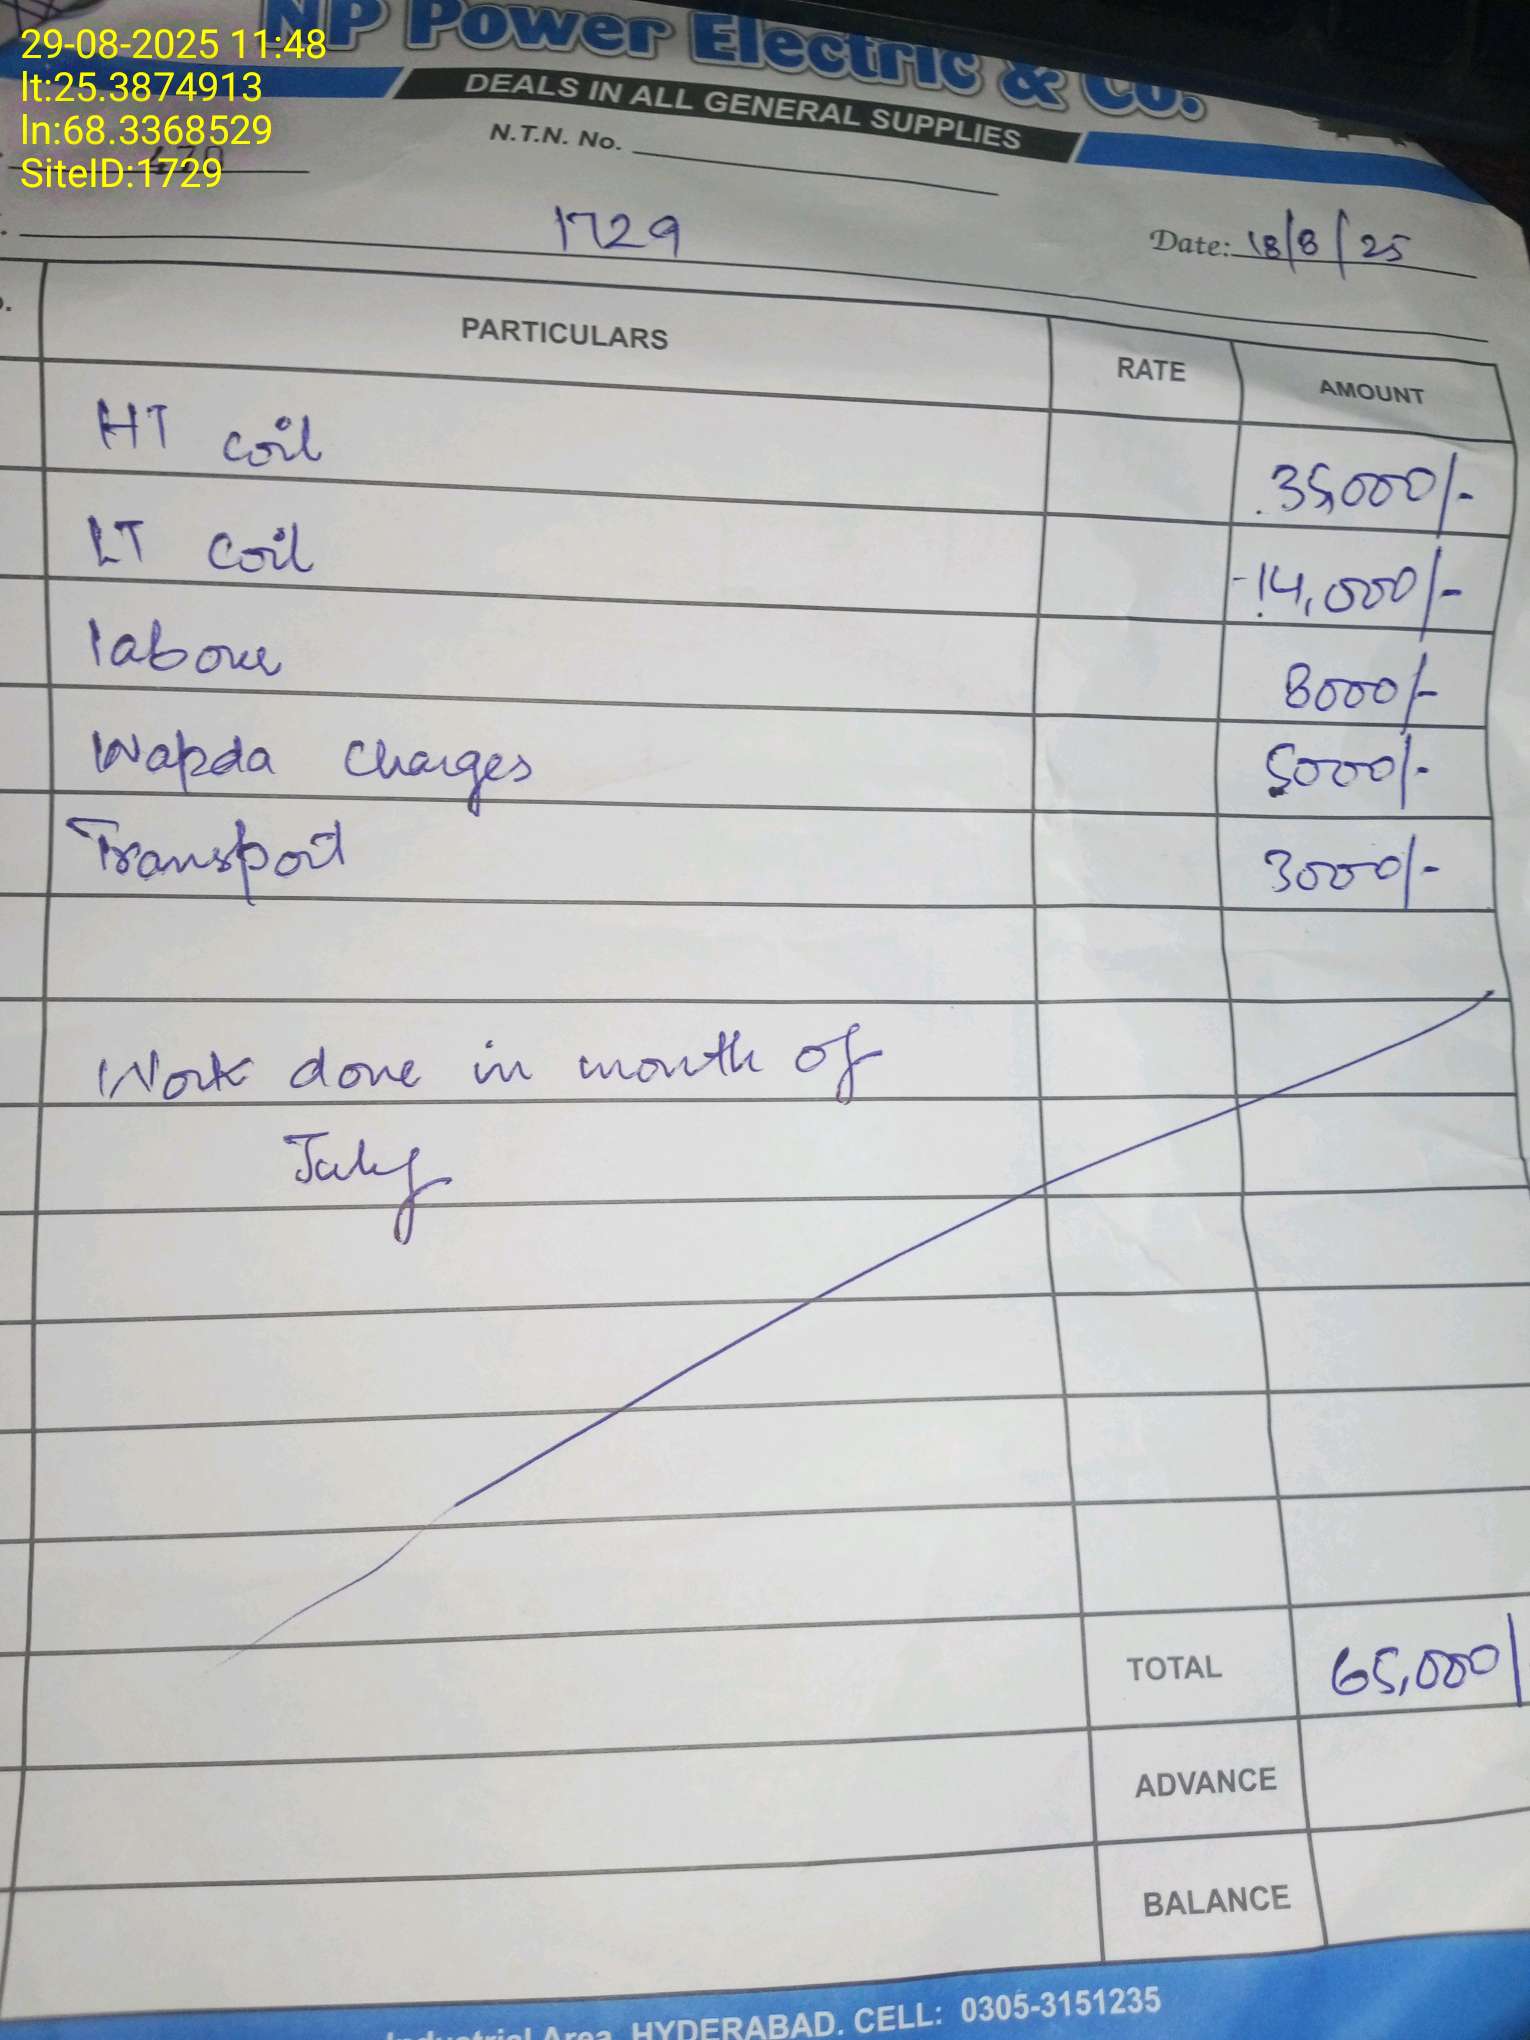 29-08-2025 11:48
lt:25.3874913
ln:68.3368529
SiteID:1729
NP Power Electric & Co.
DEALS IN ALL GENERAL SUPPLIES
N.T.N. No.
1729 Date: 18/8/25
PARTICULARS RATE AMOUNT
HT coil 35,000/-
LT coil 14,000/-
labour 8000/-
Wapda charges 5000/-
Transport 3000/-
Work done in month of
July
TOTAL 65,000/
ADVANCE
BALANCE
Industrial Area, HYDERABAD. CELL: 0305-3151235